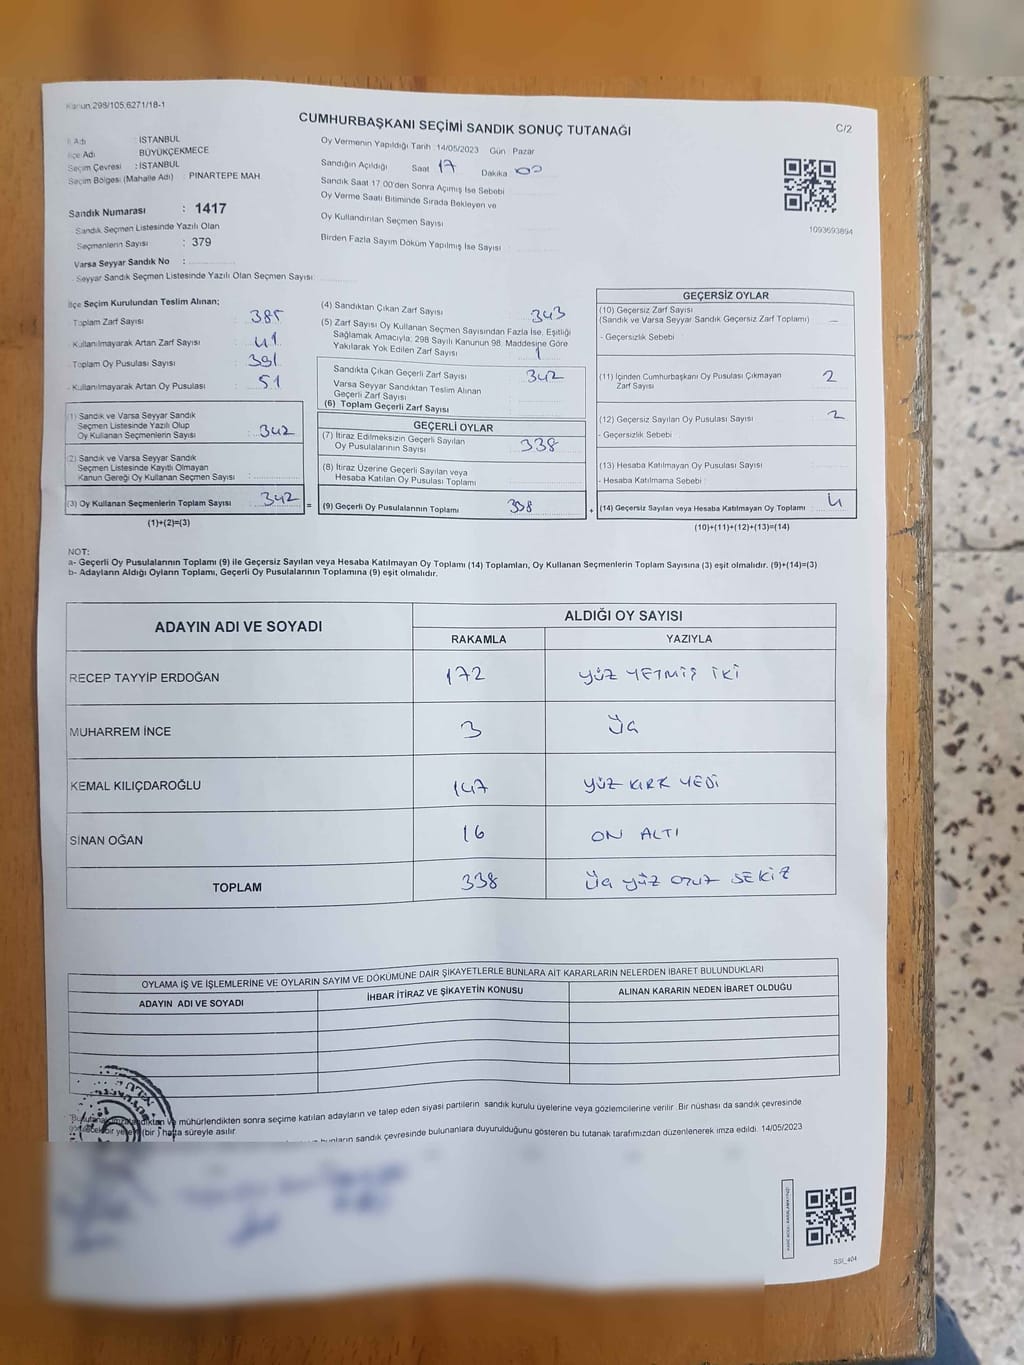 Kanun,298/105,6271/18-1
CUMHURBAŞKANI SEÇİMİ SANDIK SONUÇ TUTANAĞI
C/2
İl Adı : İSTANBUL
İlçe Adı : BÜYÜKÇEKMECE
Seçim Çevresi : İSTANBUL
Seçim Bölgesi (Mahalle Adı) : PINARTEPE MAH.
Sandık Numarası : 1417
Sandık Seçmen Listesinde Yazılı Olan
Seçmenlerin Sayısı : 379
Varsa Seyyar Sandık No :
Seyyar Sandık Seçmen Listesinde Yazılı Olan Seçmen Sayısı:
Oy Vermenin Yapıldığı Tarih : 14/05/2023 Gün Pazar
Sandığın Açıldığı Saat 17 Dakika 00
Sandık Saat 17.00'den Sonra Açılmış İse Sebebi
Oy Verme Saati Bitiminde Sırada Bekleyen ve
Oy Kullandırılan Seçmen Sayısı
Birden Fazla Sayım Döküm Yapılmış İse Sayısı
1093693894
İlçe Seçim Kurulundan Teslim Alınan;
Toplam Zarf Sayısı : 385
- Kullanılmayarak Artan Zarf Sayısı : 41
Toplam Oy Pusulası Sayısı : 391
- Kullanılmayarak Artan Oy Pusulası : 51
(1) Sandık ve Varsa Seyyar Sandık
Seçmen Listesinde Yazılı Olup
Oy Kullanan Seçmenlerin Sayısı : 342
(2) Sandık ve Varsa Seyyar Sandık
Seçmen Listesinde Kayıtlı Olmayan
Kanun Gereği Oy Kullanan Seçmen Sayısı :
(3) Oy Kullanan Seçmenlerin Toplam Sayısı : 342 =
(1)+(2)=(3)
(4) Sandıktan Çıkan Zarf Sayısı 343
(5) Zarf Sayısı Oy Kullanan Seçmen Sayısından Fazla İse, Eşitliği
Sağlamak Amacıyla; 298 Sayılı Kanunun 98. Maddesine Göre
Yakılarak Yok Edilen Zarf Sayısı 1
Sandıkta Çıkan Geçerli Zarf Sayısı 342
Varsa Seyyar Sandıktan Teslim Alınan
Geçerli Zarf Sayısı
(6) Toplam Geçerli Zarf Sayısı
GEÇERLİ OYLAR
(7) İtiraz Edilmeksizin Geçerli Sayılan
Oy Pusulalarının Sayısı 338
(8) İtiraz Üzerine Geçerli Sayılan veya
Hesaba Katılan Oy Pusulası Toplamı
(9) Geçerli Oy Pusulalarının Toplamı 338 +
GEÇERSİZ OYLAR
(10) Geçersiz Zarf Sayısı
(Sandık ve Varsa Seyyar Sandık Geçersiz Zarf Toplamı) —
- Geçersizlik Sebebi :
(11) İçinden Cumhurbaşkanı Oy Pusulası Çıkmayan
Zarf Sayısı 2
(12) Geçersiz Sayılan Oy Pusulası Sayısı 2
- Geçersizlik Sebebi
(13) Hesaba Katılmayan Oy Pusulası Sayısı
- Hesaba Katılmama Sebebi
(14) Geçersiz Sayılan veya Hesaba Katılmayan Oy Toplamı : 4
(10)+(11)+(12)+(13)=(14)
NOT:
a- Geçerli Oy Pusulalarının Toplamı (9) ile Geçersiz Sayılan veya Hesaba Katılmayan Oy Toplamı (14) Toplamları, Oy Kullanan Seçmenlerin Toplam Sayısına (3) eşit olmalıdır. (9)+(14)=(3)
b- Adayların Aldığı Oyların Toplamı, Geçerli Oy Pusulalarının Toplamına (9) eşit olmalıdır.
ADAYIN ADI VE SOYADI
ALDIĞI OY SAYISI
RAKAMLA YAZIYLA
RECEP TAYYİP ERDOĞAN 172 YÜZ YETMİŞ İKİ
MUHARREM İNCE 3 Üç
KEMAL KILIÇDAROĞLU 147 YÜZ KIRK YEDİ
SİNAN OĞAN 16 ON ALTI
TOPLAM 338 Üç yüz OTUZ SEKİZ
OYLAMA İŞ VE İŞLEMLERİNE VE OYLARIN SAYIM VE DÖKÜMÜNE DAİR ŞİKAYETLERLE BUNLARA AİT KARARLARIN NELERDEN İBARET BULUNDUKLARI
ADAYIN ADI VE SOYADI İHBAR İTİRAZ VE ŞİKAYETİN KONUSU ALINAN KARARIN NEDEN İBARET OLDUĞU
ve mühürlendikten sonra seçime katılan adayların ve talep eden siyasi partilerin sandık kurulu üyelerine veya gözlemcilerine verilir. Bir nüshası da sandık çevresinde
(bir) hafta süreyle asılır.
bunların sandık çevresinde bulunanlara duyurulduğunu gösteren bu tutanak tarafımızdan düzenlenerek imza edildi. 14/05/2023
SSI_404